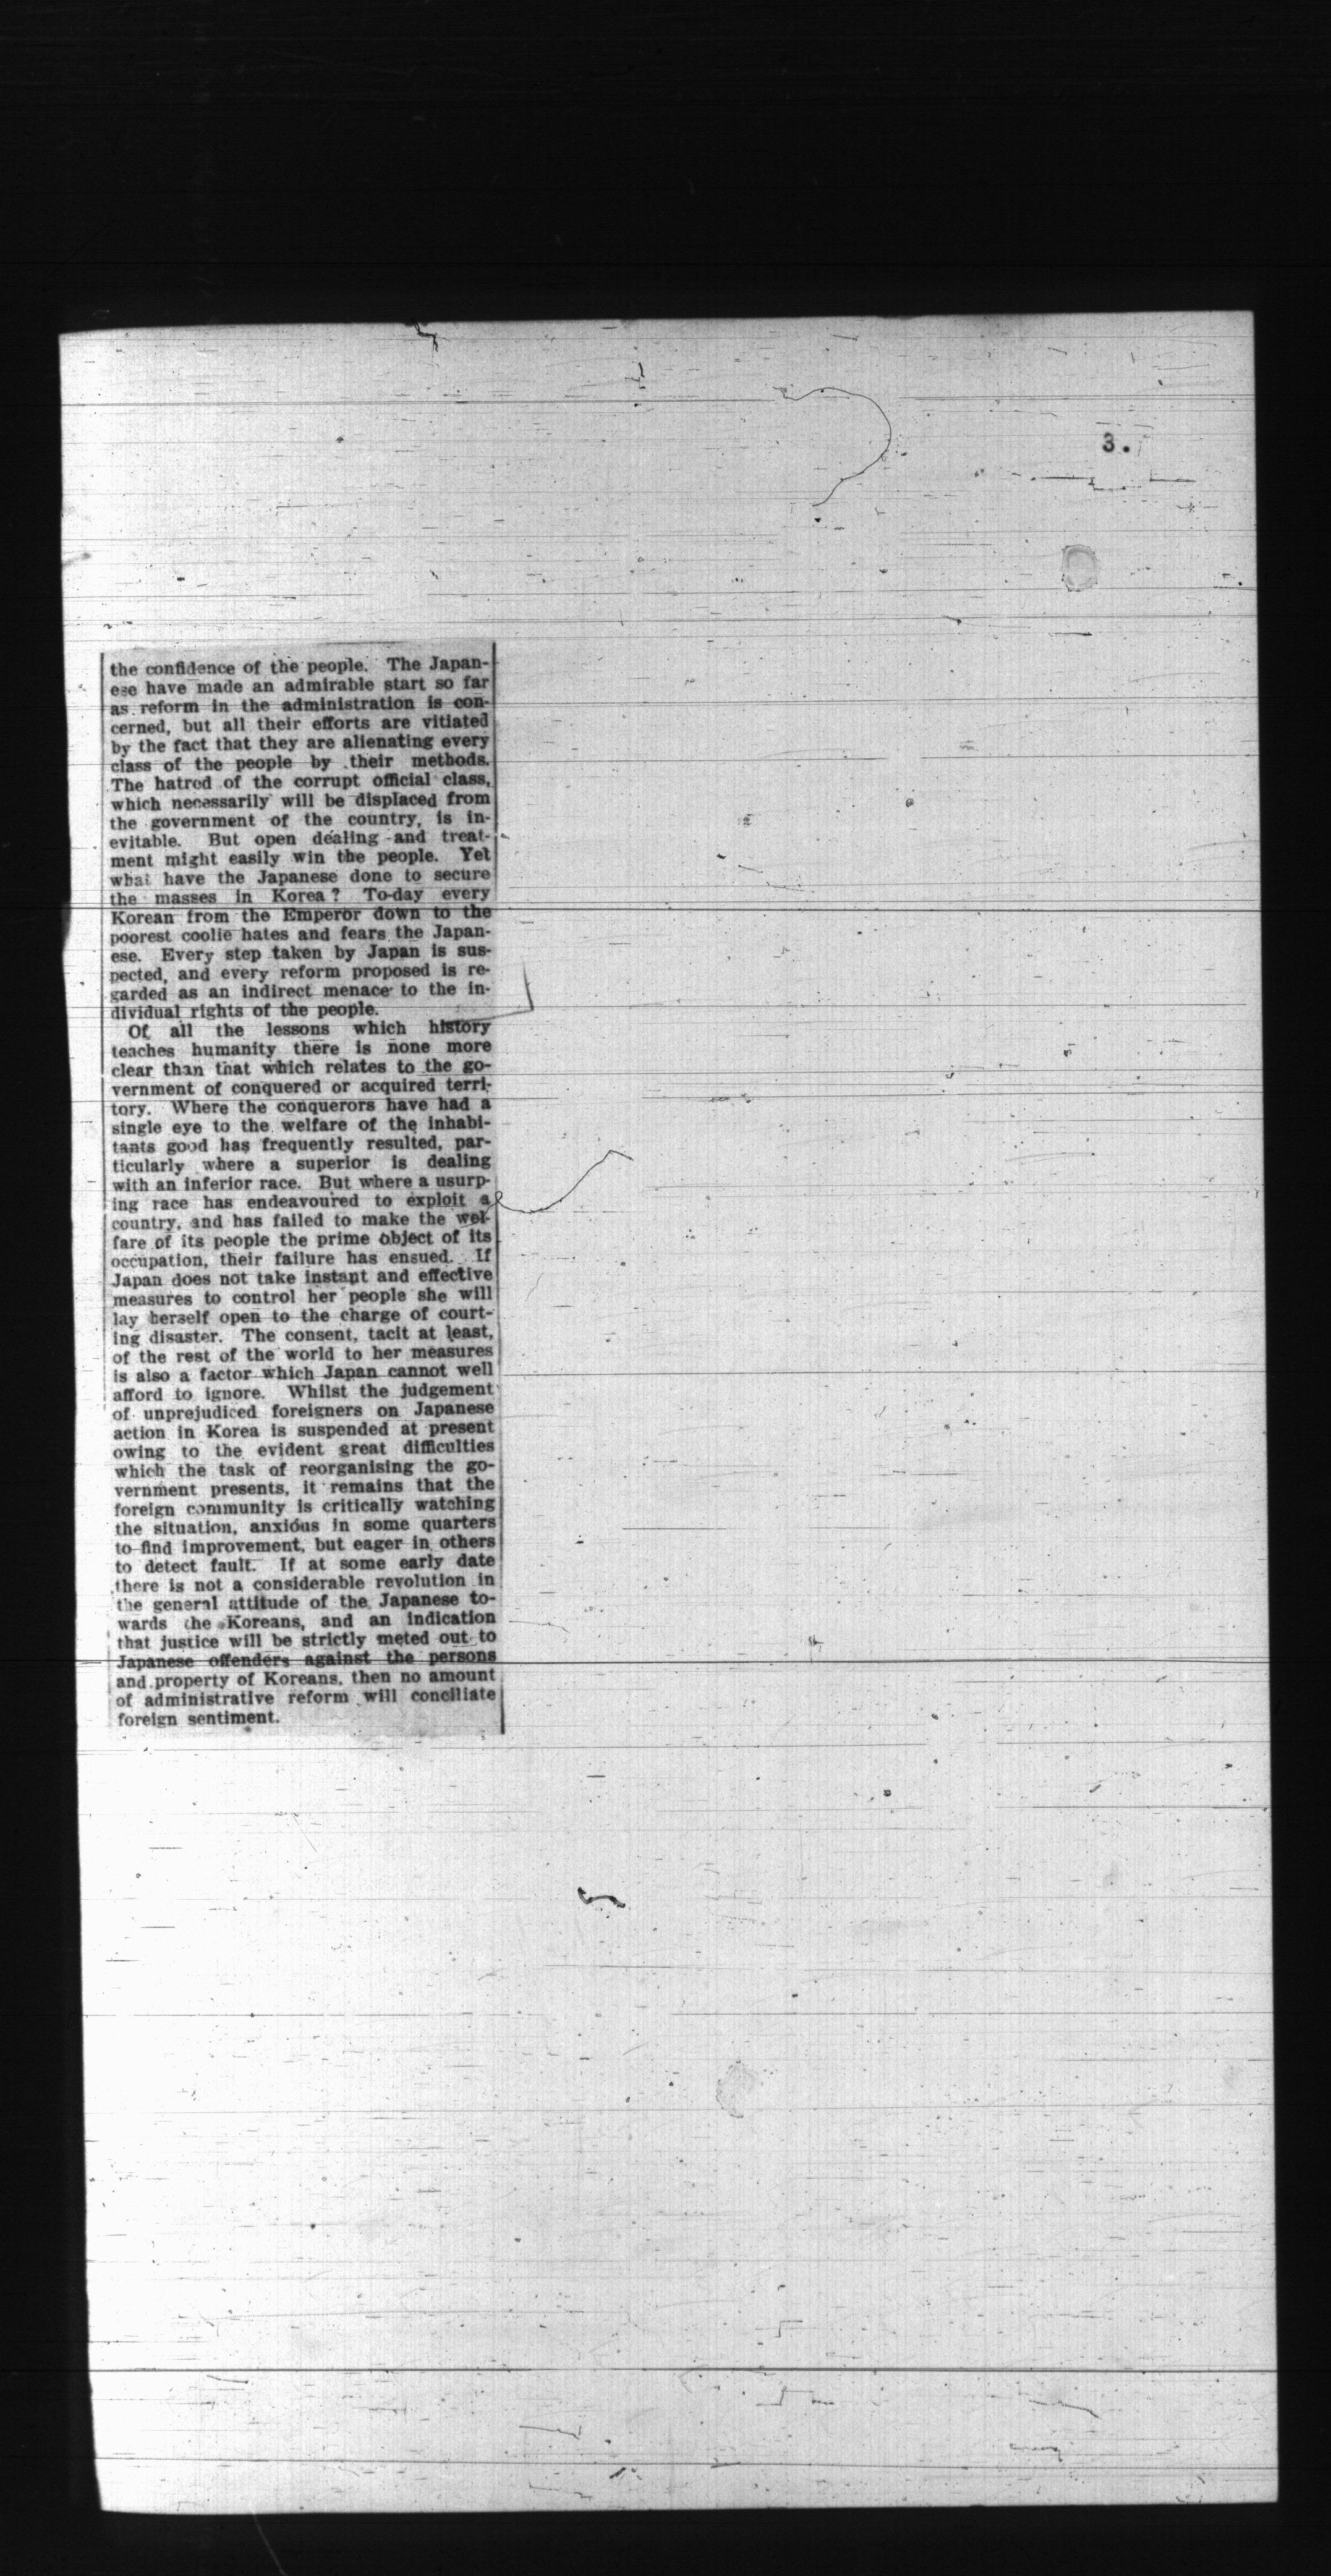 3.
the confidence of the people. The Japan-
ese have made an admirable start so far
as reform in the administration is con-
cerned, but all their efforts are vitiated
by the fact that they are alienating every
class of the people by their methods.
The hatred of the corrupt official class,
which necessarily will be displaced from
the government of the country, is in-
evitable. But open dealing and treat-
ment might easily win the people. Yet
what have the Japanese done to secure
the masses in Korea? To-day every
Korean from the Emperor down to the
poorest coolie hates and fears the Japan-
ese. Every step taken by Japan is sus-
pected, and every reform proposed is re-
garded as an indirect menace to the in-
dividual rights of the people.
Of all the lessons which history
teaches humanity there is none more
clear than that which relates to the go-
vernment of conquered or acquired terri-
tory. Where the conquerors have had a
single eye to the welfare of the inhabi-
tants good has frequently resulted, par-
ticularly where a superior is dealing
with an inferior race. But where a usurp-
ing race has endeavoured to exploit a
country, and has failed to make the wel-
fare of its people the prime object of its
occupation, their failure has ensued. If
Japan does not take instant and effective
measures to control her people she will
lay herself open to the charge of court-
ing disaster. The consent, tacit at least,
of the rest of the world to her measures
is also a factor which Japan cannot well
afford to ignore. Whilst the judgement
of unprejudiced foreigners on Japanese
action in Korea is suspended at present
owing to the evident great difficulties
which the task of reorganising the go-
vernment presents, it remains that the
foreign community is critically watching
the situation, anxious in some quarters
to find improvement, but eager in others
to detect fault. If at some early date
there is not a considerable revolution in
the general attitude of the Japanese to-
wards the Koreans, and an indication
that justice will be strictly meted out to
Japanese offenders against the persons
and property of Koreans, then no amount
of administrative reform will conciliate
foreign sentiment.